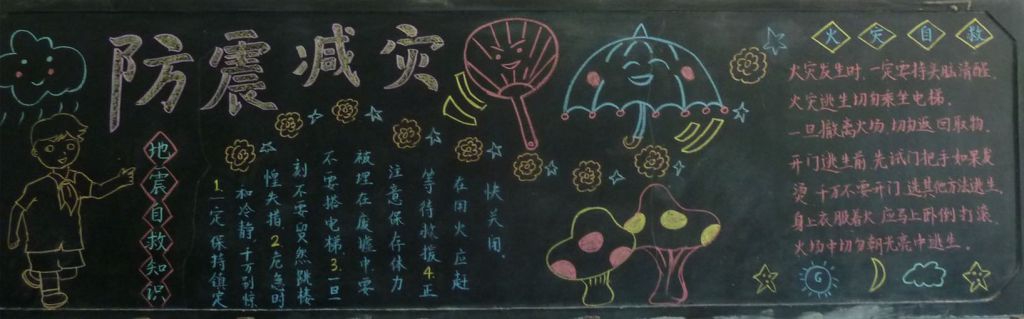 防震减灾
地震自救知识
1.一定保持镇定
和冷静,千万别惊
惶失措.2.危急时
刻不要贸然跳楼
不要搭电梯.3.一旦
被埋在废墟中要
注意保存体力
等待救援.4.正
在用火应赶
快关闭.
火灾自救
火灾发生时.一定要持头脑清醒.
火灾逃生切勿乘坐电梯.
一旦撤离火场.切勿返回取物.
开门逃生前先试门把手如果发
烫 千万不要开门 选其他方法逃生
身上衣服着火 应马上卧倒打滚
火场中切勿朝光亮中逃生.